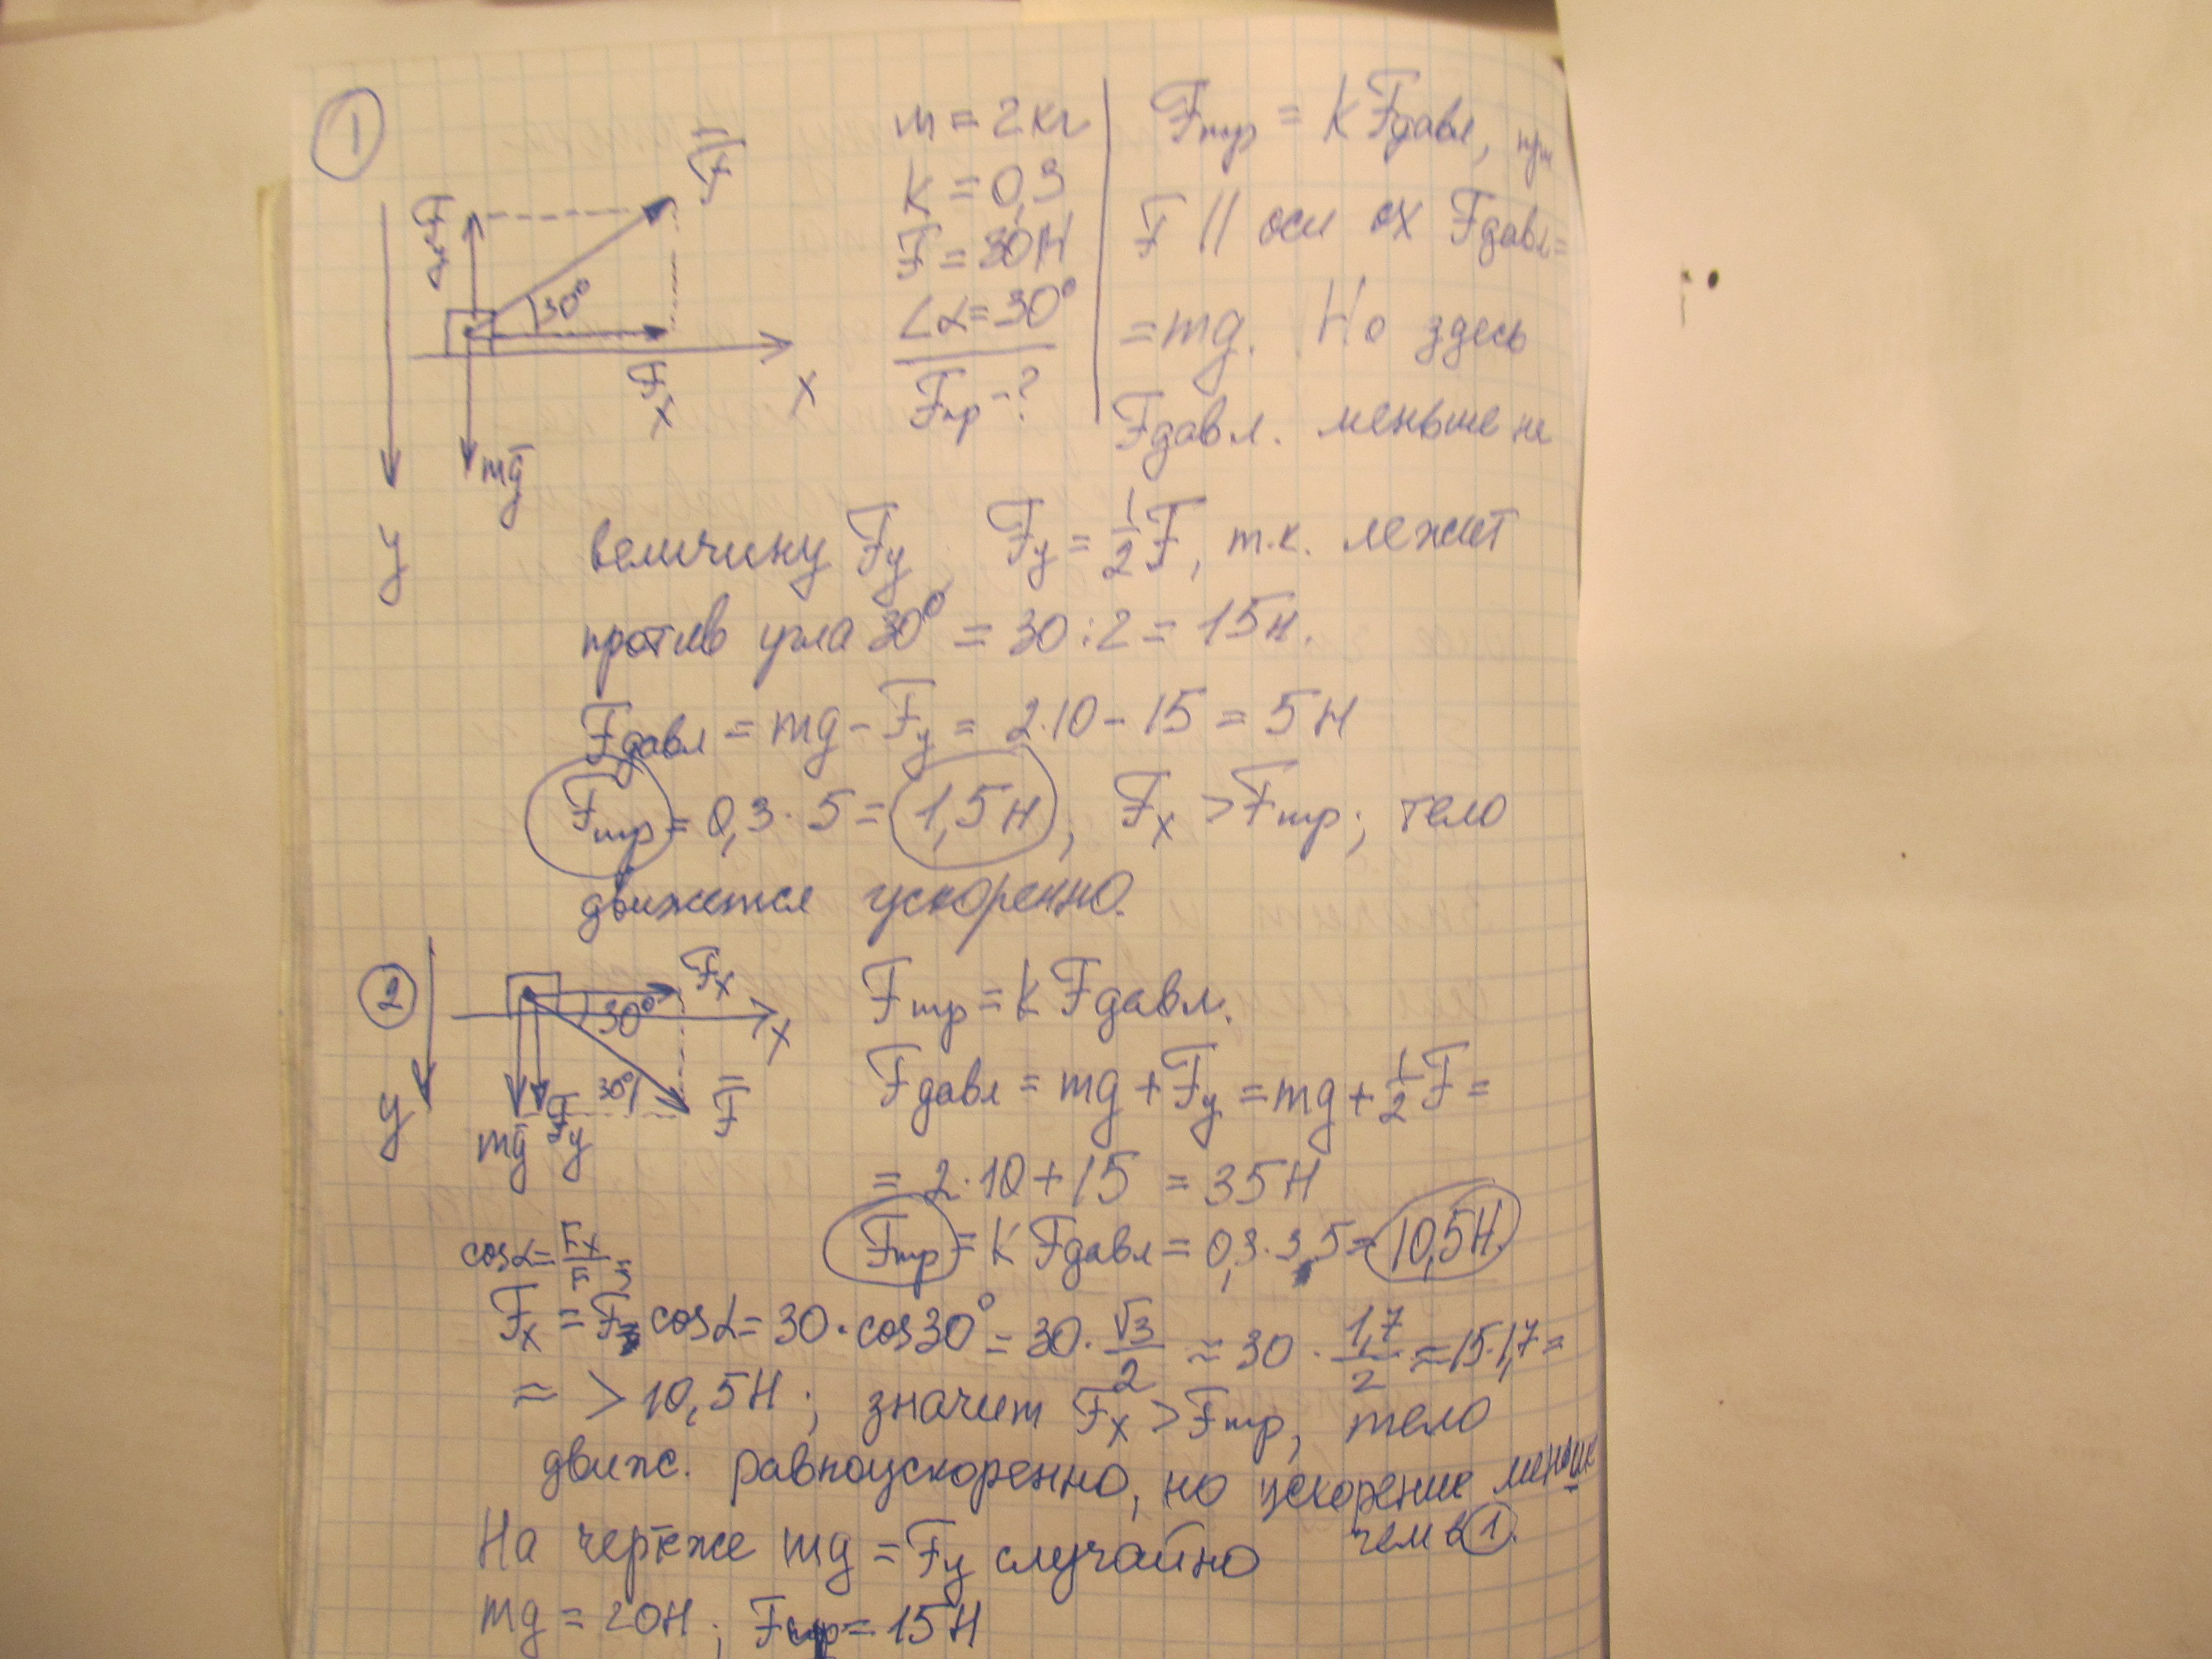 1
F̄
Fy
30°
Fx
x
mg̅
y
m = 2 кг
K = 0,3
F = 30 Н
∠α = 30°
Fтр - ?
Fтр = K Fдавл, при
F || оси ox Fдавл =
= mg. Но здесь
Fдавл. меньше на
величину Fy, Fy = 1/2 F, т.к. лежит
против угла 30° = 30 : 2 = 15 Н.
Fдавл = mg - Fy = 2·10 - 15 = 5 Н
Fтр = 0,3 · 5 = 1,5 Н, Fx > Fтр; тело
движется ускоренно.
2
Fx
30°
x
30°
F̄
y
mg̅ Fy
Fтр = K Fдавл.
Fдавл = mg + Fy = mg + 1/2 F =
= 2·10 + 15 = 35 Н
Fтр = K Fдавл = 0,3 · 35 = 10,5 Н.
cosα = Fx/F =
Fx = F cosα = 30 · cos30° = 30 · √3/2 ≈ 30 · 1,7/2 ≈ 15·1,7 =
≈ > 10,5 Н; значит Fx > Fтр, тело
движ. равноускоренно, но ускорение меньше
чем в 1.
На чертеже mg = Fy случайно
mg = 20 Н; F = 15 Н